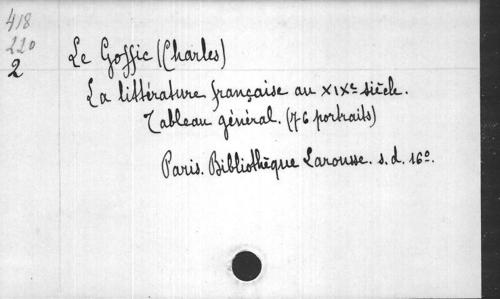 418
220
2
Le Goffic (Charles)
La littérature française au XIXe siècle.
Tableau général. (76 portraits)
Paris. Bibliothèque Larousse. s.d. 16º.